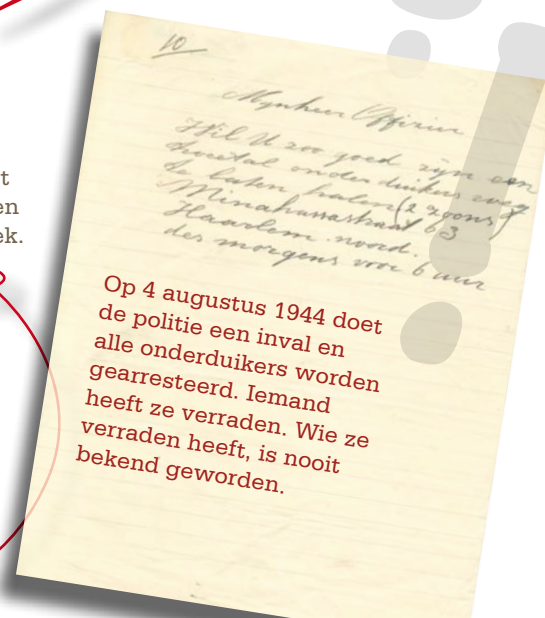 t
en
ek.
10
Mijnheer Officier
Wil U zoo goed zijn een
tweetal onderduikers weg
te laten halen (2 zoons)
Minahassastraat 63
Haarlem noord.
des morgens voor 6 uur
Op 4 augustus 1944 doet
de politie een inval en
alle onderduikers worden
gearresteerd. Iemand
heeft ze verraden. Wie ze
verraden heeft, is nooit
bekend geworden.